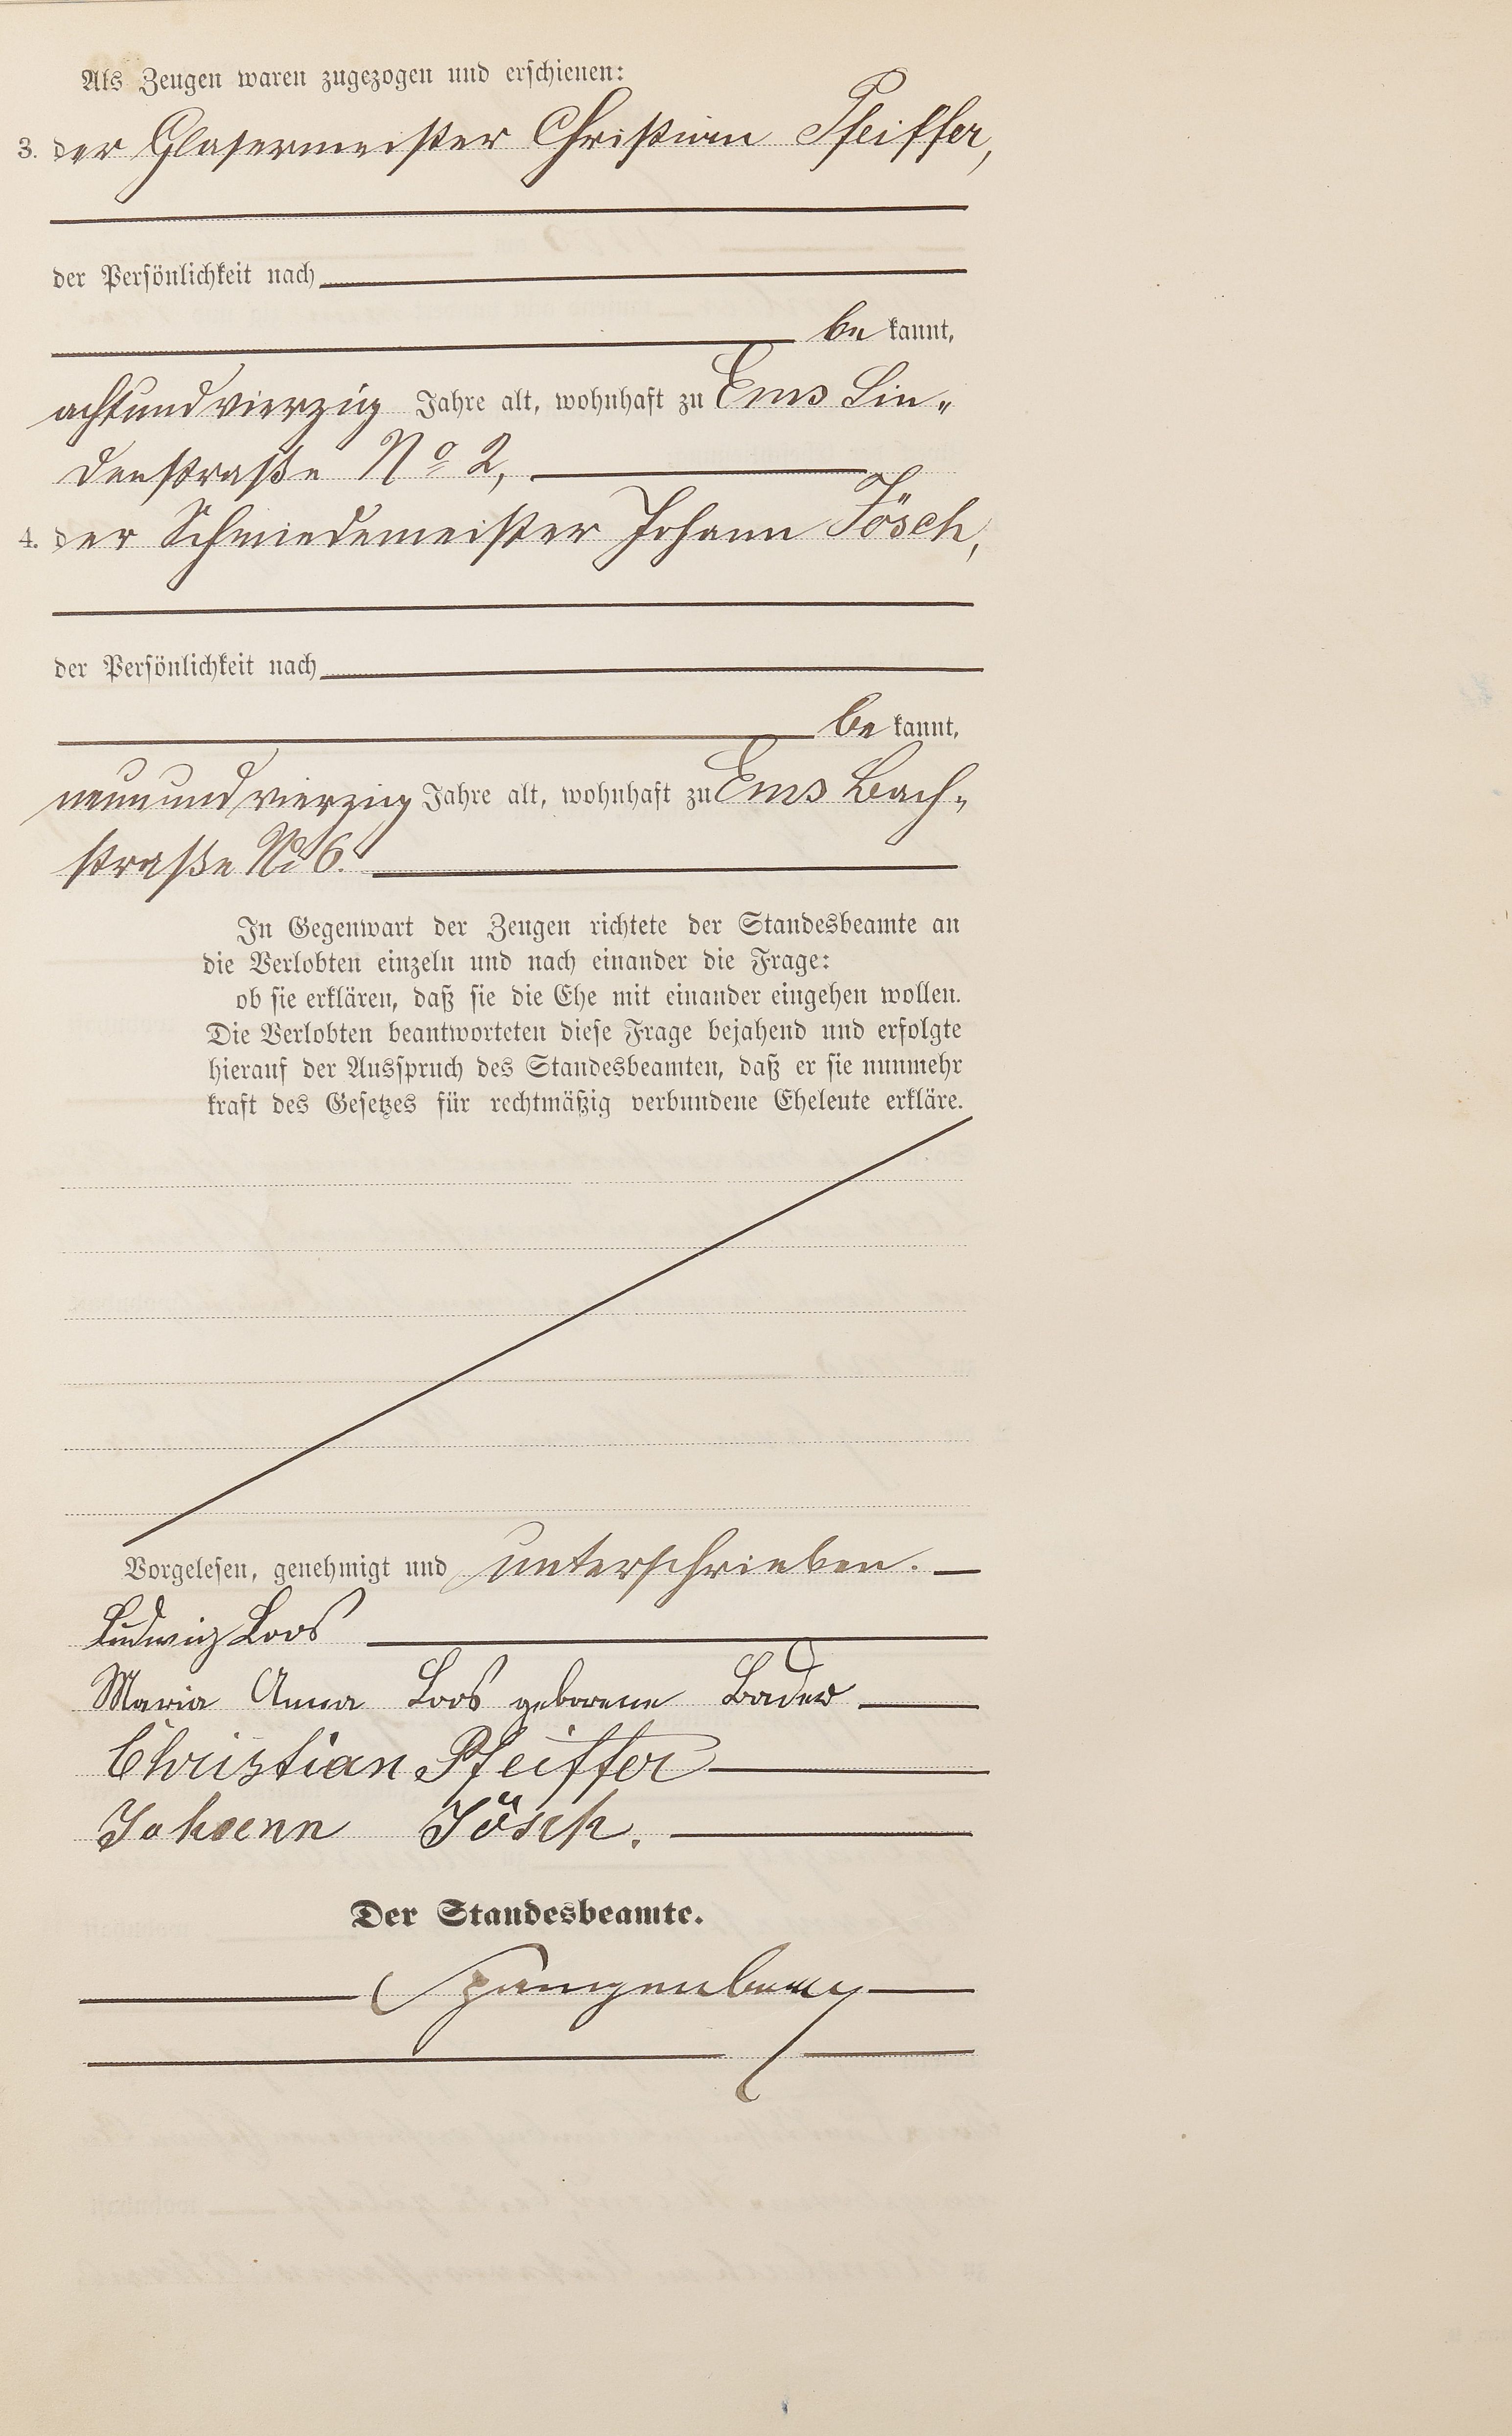 Als Zeugen waren zugezogen und erschienen:
3. der Glasermeister Christian Pfeiffer,
der Persönlichkeit nach
be kannt,
achtundvierzig Jahre alt, wohnhaft zu Ems Lin-
denstraße No 2,
4. der Schmiedemeister Johann Jösch,
der Persönlichkeit nach
be kannt,
neunundvierzig Jahre alt, wohnhaft zu Ems Bach-
straße No 6.
In Gegenwart der Zeugen richtete der Standesbeamte an
die Verlobten einzeln und nach einander die Frage:
ob sie erklären, daß sie die Ehe mit einander eingehen wollen.
Die Verlobten beantworteten diese Frage bejahend und erfolgte
hierauf der Ausspruch des Standesbeamten, daß er sie nunmehr
kraft des Gesetzes für rechtmäßig verbundene Eheleute erkläre.
Vorgelesen, genehmigt und unterschrieben.
Ludwig Loos
Maria Anna Loos geborene Bader
Christian Pfeiffer
Johann Jösch.
Der Standesbeamte.
Spangenberg